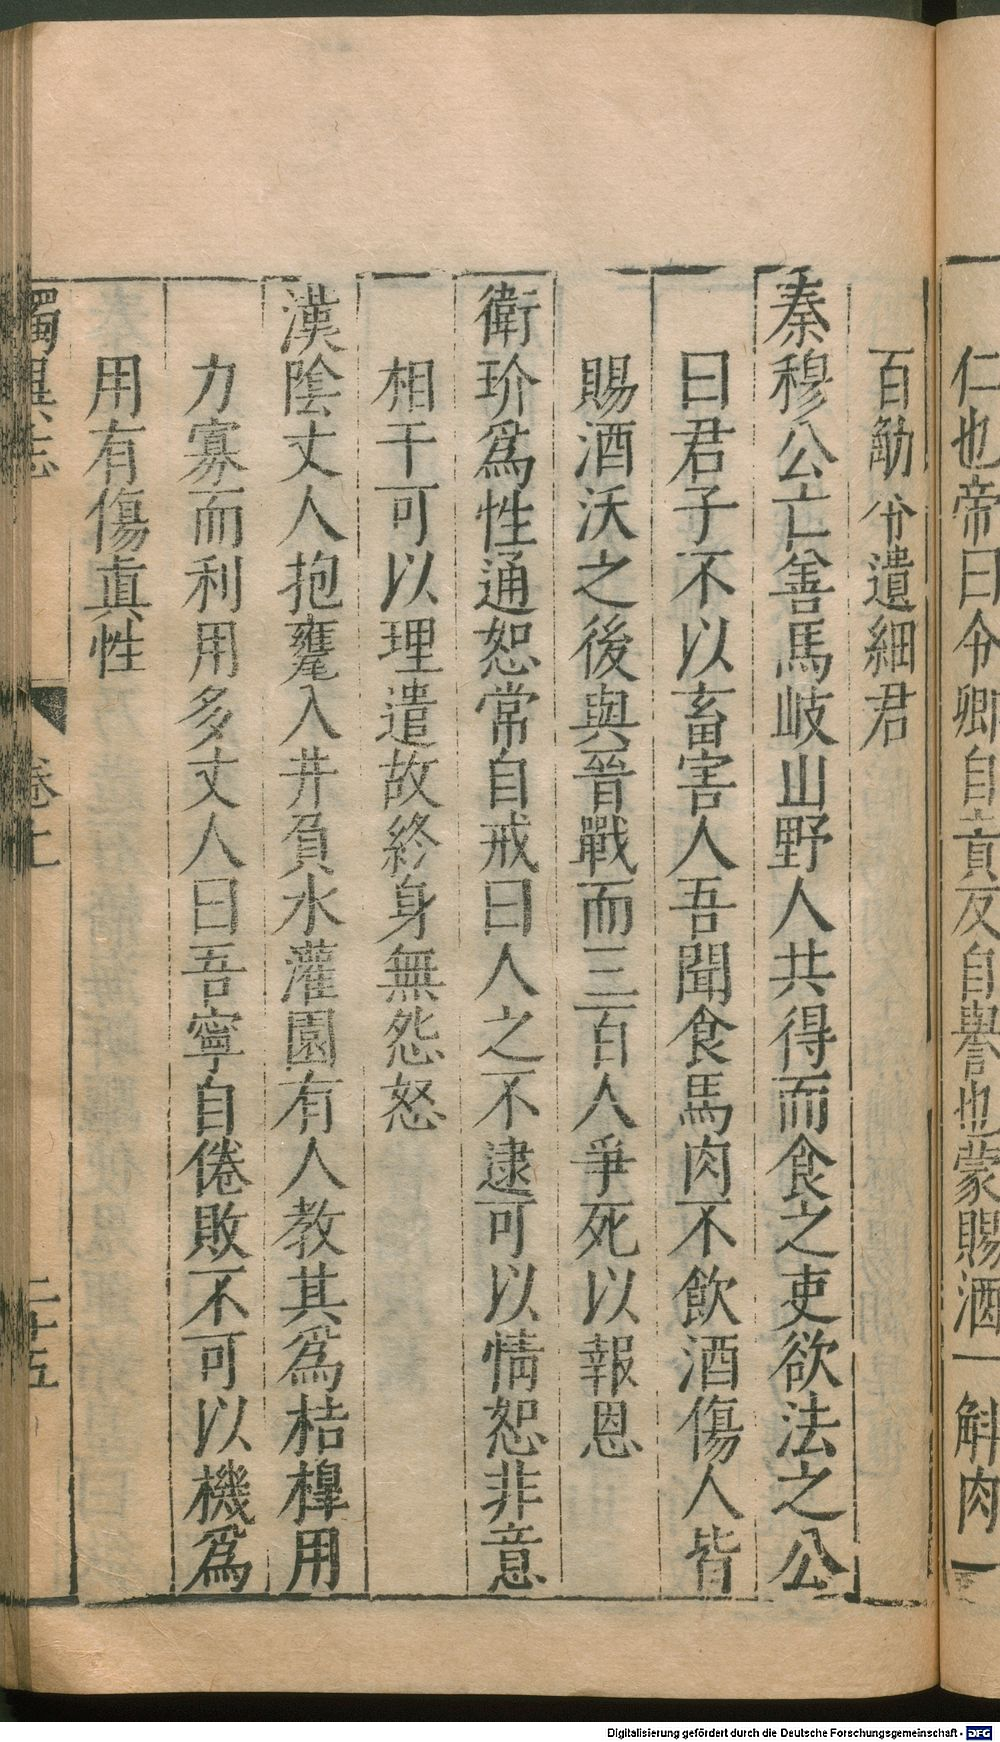 仁也帝曰令卿自責反自譽也蒙賜酒一斛肉
百觔兮遺細君
秦穆公亡善馬岐山野人共得而食之吏欲法之公
曰君子不以畜害人吾聞食馬肉不飲酒傷人皆
賜酒沃之後與晉戰而三百人爭死以報恩
衛玠爲性通恕常自戒曰人之不逮可以情恕非意
相干可以理遣故終身無怨怒
漢陰丈人抱罋入井負水灌園有人教其爲桔槹用
力寡而利用多丈人曰吾寧自倦敗不可以機爲
用有傷真性
獨異志
卷上
二十五
Digitalisierung gefördert durch die Deutsche Forschungsgemeinschaft - DFG